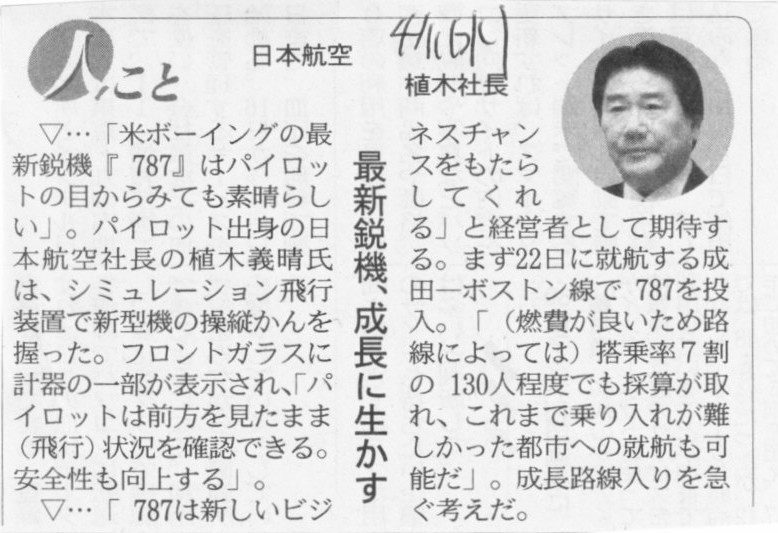 人、こと
日本航空
植木社長
最新鋭機、成長に生かす
▽…「米ボーイングの最
新鋭機『787』はパイロッ
トの目からみても素晴らし
い」。パイロット出身の日
本航空社長の植木義晴氏
は、シミュレーション飛行
装置で新型機の操縦かんを
握った。フロントガラスに
計器の一部が表示され、「パ
イロットは前方を見たまま
(飛行)状況を確認できる。
安全性も向上する」。
▽…「787は新しいビジ
ネスチャン
スをもたら
してくれ
る」と経営者として期待す
る。まず22日に就航する成
田―ボストン線で787を投
入。「(燃費が良いため路
線によっては)搭乗率7割
の130人程度でも採算が取
れ、これまで乗り入れが難
しかった都市への就航も可
能だ」。成長路線入りを急
ぐ考えだ。